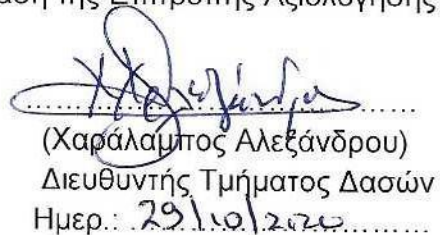 της Επιτροπής Αξιολόγησης
(Χαράλαμπος Αλεξάνδρου)
Διευθυντής Τμήματος Δασών
Ημερ.: 29/10/2020